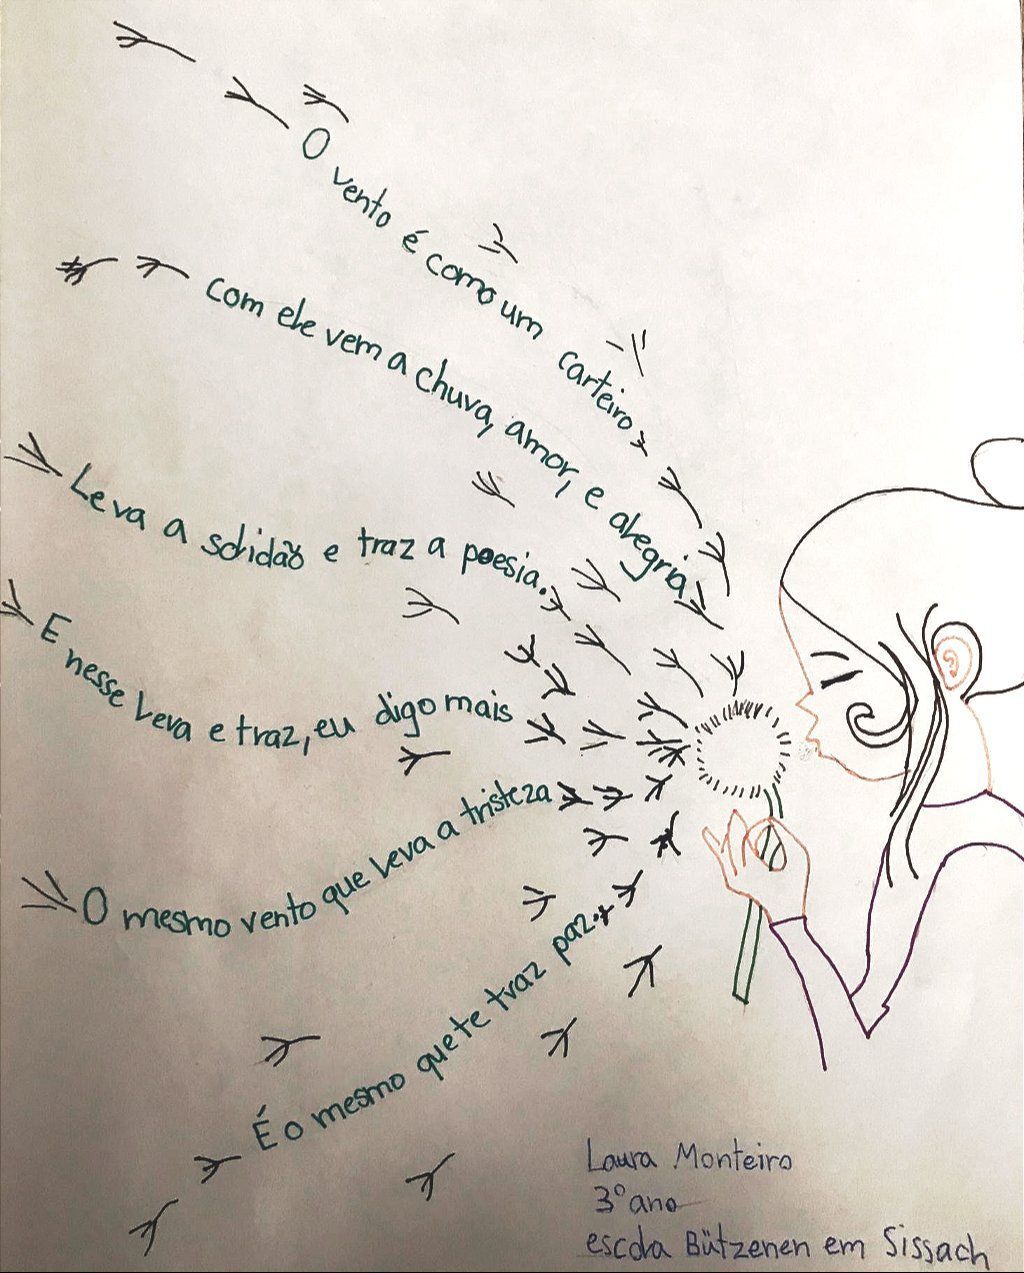 O vento é como um carteiro
com ele vem a chuva, amor, e alegria
Leva a solidão e traz a poesia.
E nesse leva e traz, eu digo mais
O mesmo vento que leva a tristeza
É o mesmo que te traz paz.
Laura Monteiro
3º ano
escola Bützenen em Sissach